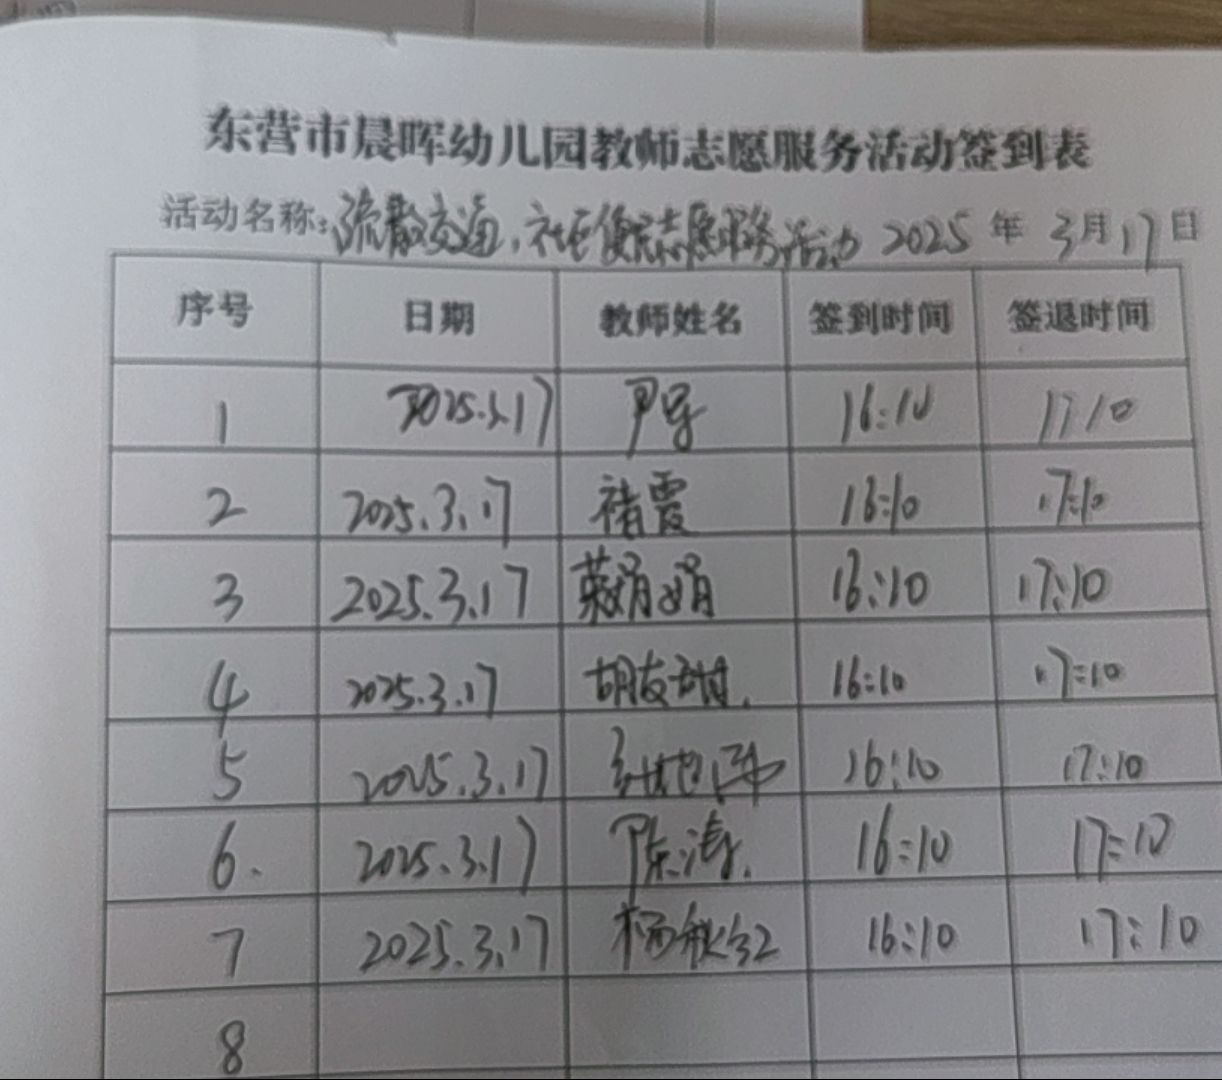 东营市晨晖幼儿园教师志愿服务活动签到表
活动名称:疏散交通,社区便民志愿服务活动 2025 年 3月17日
序号 日期 教师姓名 签到时间 签退时间
1 2025.3.17 16:10 17:10
2 2025.3.17 褚霞 16:10 17:10
3 2025.3.17 16:10 17:10
4 2025.3.17 胡友甜. 16:10 17:10
5 2025.3.17 16:10 17:10
6. 2025.3.17 陈涛. 16:10 17:10
7 2025.3.17 杨秋红 16:10 17:10
8